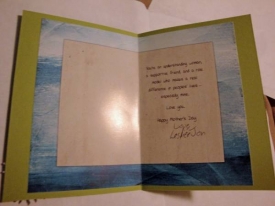 You're an understanding woman,
a supportive friend, and a role
model who makes a real
difference in peoples' lives...
especially mine.
Love you.
Happy Mother's Day